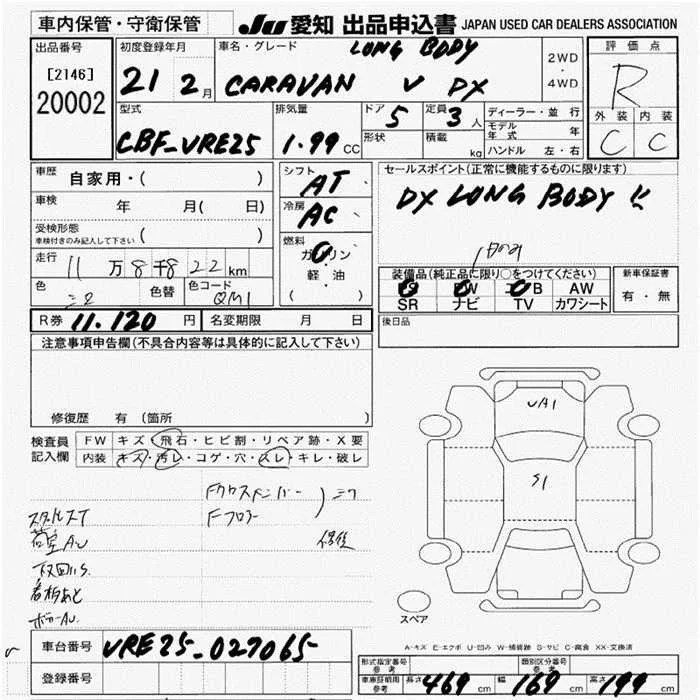 車内保管・守衛保管
JU 愛知 出品申込書 JAPAN USED CAR DEALERS ASSOCIATION
出品番号
[2146]
20002
初度登録年月
21 2月
車名・グレード
LONG BODY
CARAVAN V DX
2WD
・
4WD
評価点
R
外装 内装
C C
型式
CBF-VRE25
排気量
1.99 CC
ドア 5
定員 3人
形状
積載 kg
ディーラー・並行
モデル年式 年
ハンドル 左・右
車歴 自家用・( )
車検 年 月( 日)
受検形態
車検付きのみ記入して下さい ( )
走行 11万8千822km
色 色替 色コード
QM1
シフト AT
冷房 AC
燃料
ガソリン
・
軽・油
( )
セールスポイント(正常に機能するものに限ります)
DX LONG BODY !!
装備品(純正品に限り○をつけてください)
PS PW エアB AW
SR ナビ TV カワシート
新車保証書
有・無
R券 11.120円
名変期限 月 日
後日品
注意事項申告欄(不具合内容等は具体的に記入して下さい)
修復歴 有 (箇所 )
検査員記入欄
FW キズ・飛石・ヒビ割・リペア跡・X要
内装 キズ・汚レ・コゲ・穴・スレ・キレ・破レ
Fクロスメンバー
Fフロアー
荷室AU
下回りS
看板あと
UA1
S1
スペア
A-キズ E-エクボ U-凹み W-補修跡 S-サビ C-腐食 XX-交換済
車台番号 VRE25-027065
登録番号
形式指定番号
参考
類別区分番号
参考
車庫証明用
参考
長さ 469cm 幅 169cm 高さ 199cm